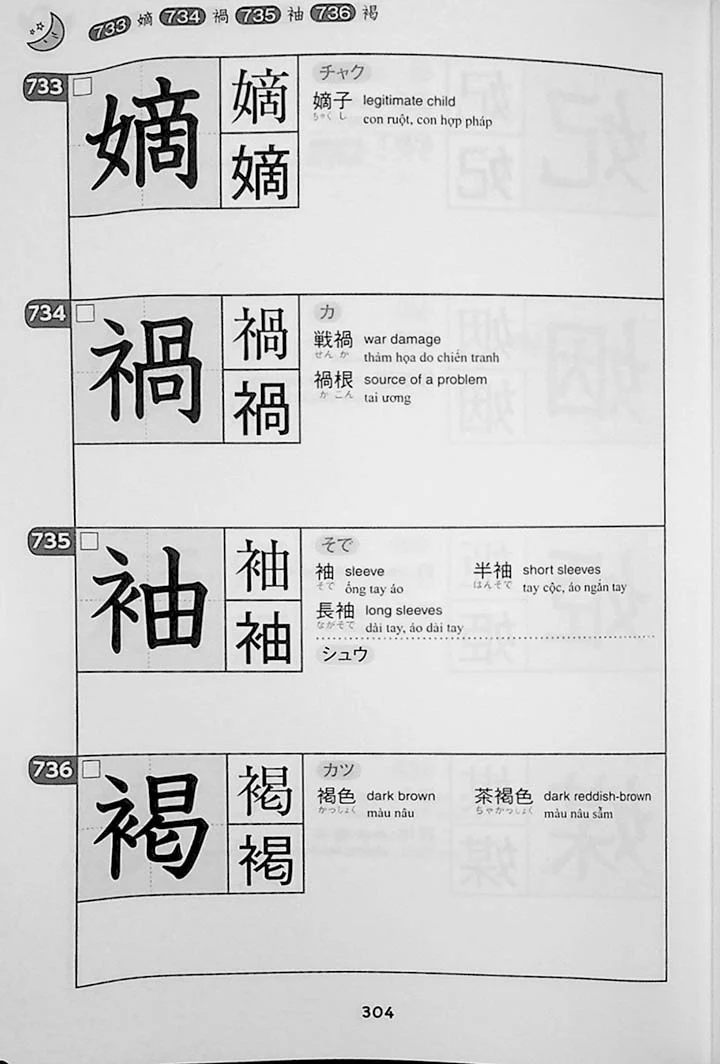 733 嫡 734 禍 735 袖 736 褐
733
嫡
嫡
嫡
チャク
嫡子 legitimate child
ちゃく し con ruột, con hợp pháp
734
禍
禍
禍
カ
戦禍 war damage
せん か thảm họa do chiến tranh
禍根 source of a problem
か こん tai ương
735
袖
袖
袖
そで
袖 sleeve 半袖 short sleeves
そで ống tay áo はんそで tay cộc, áo ngắn tay
長袖 long sleeves
ながそで dài tay, áo dài tay
シュウ
736
褐
褐
褐
カツ
褐色 dark brown 茶褐色 dark reddish-brown
かっしょく màu nâu ちゃかっしょく màu nâu sẫm
304